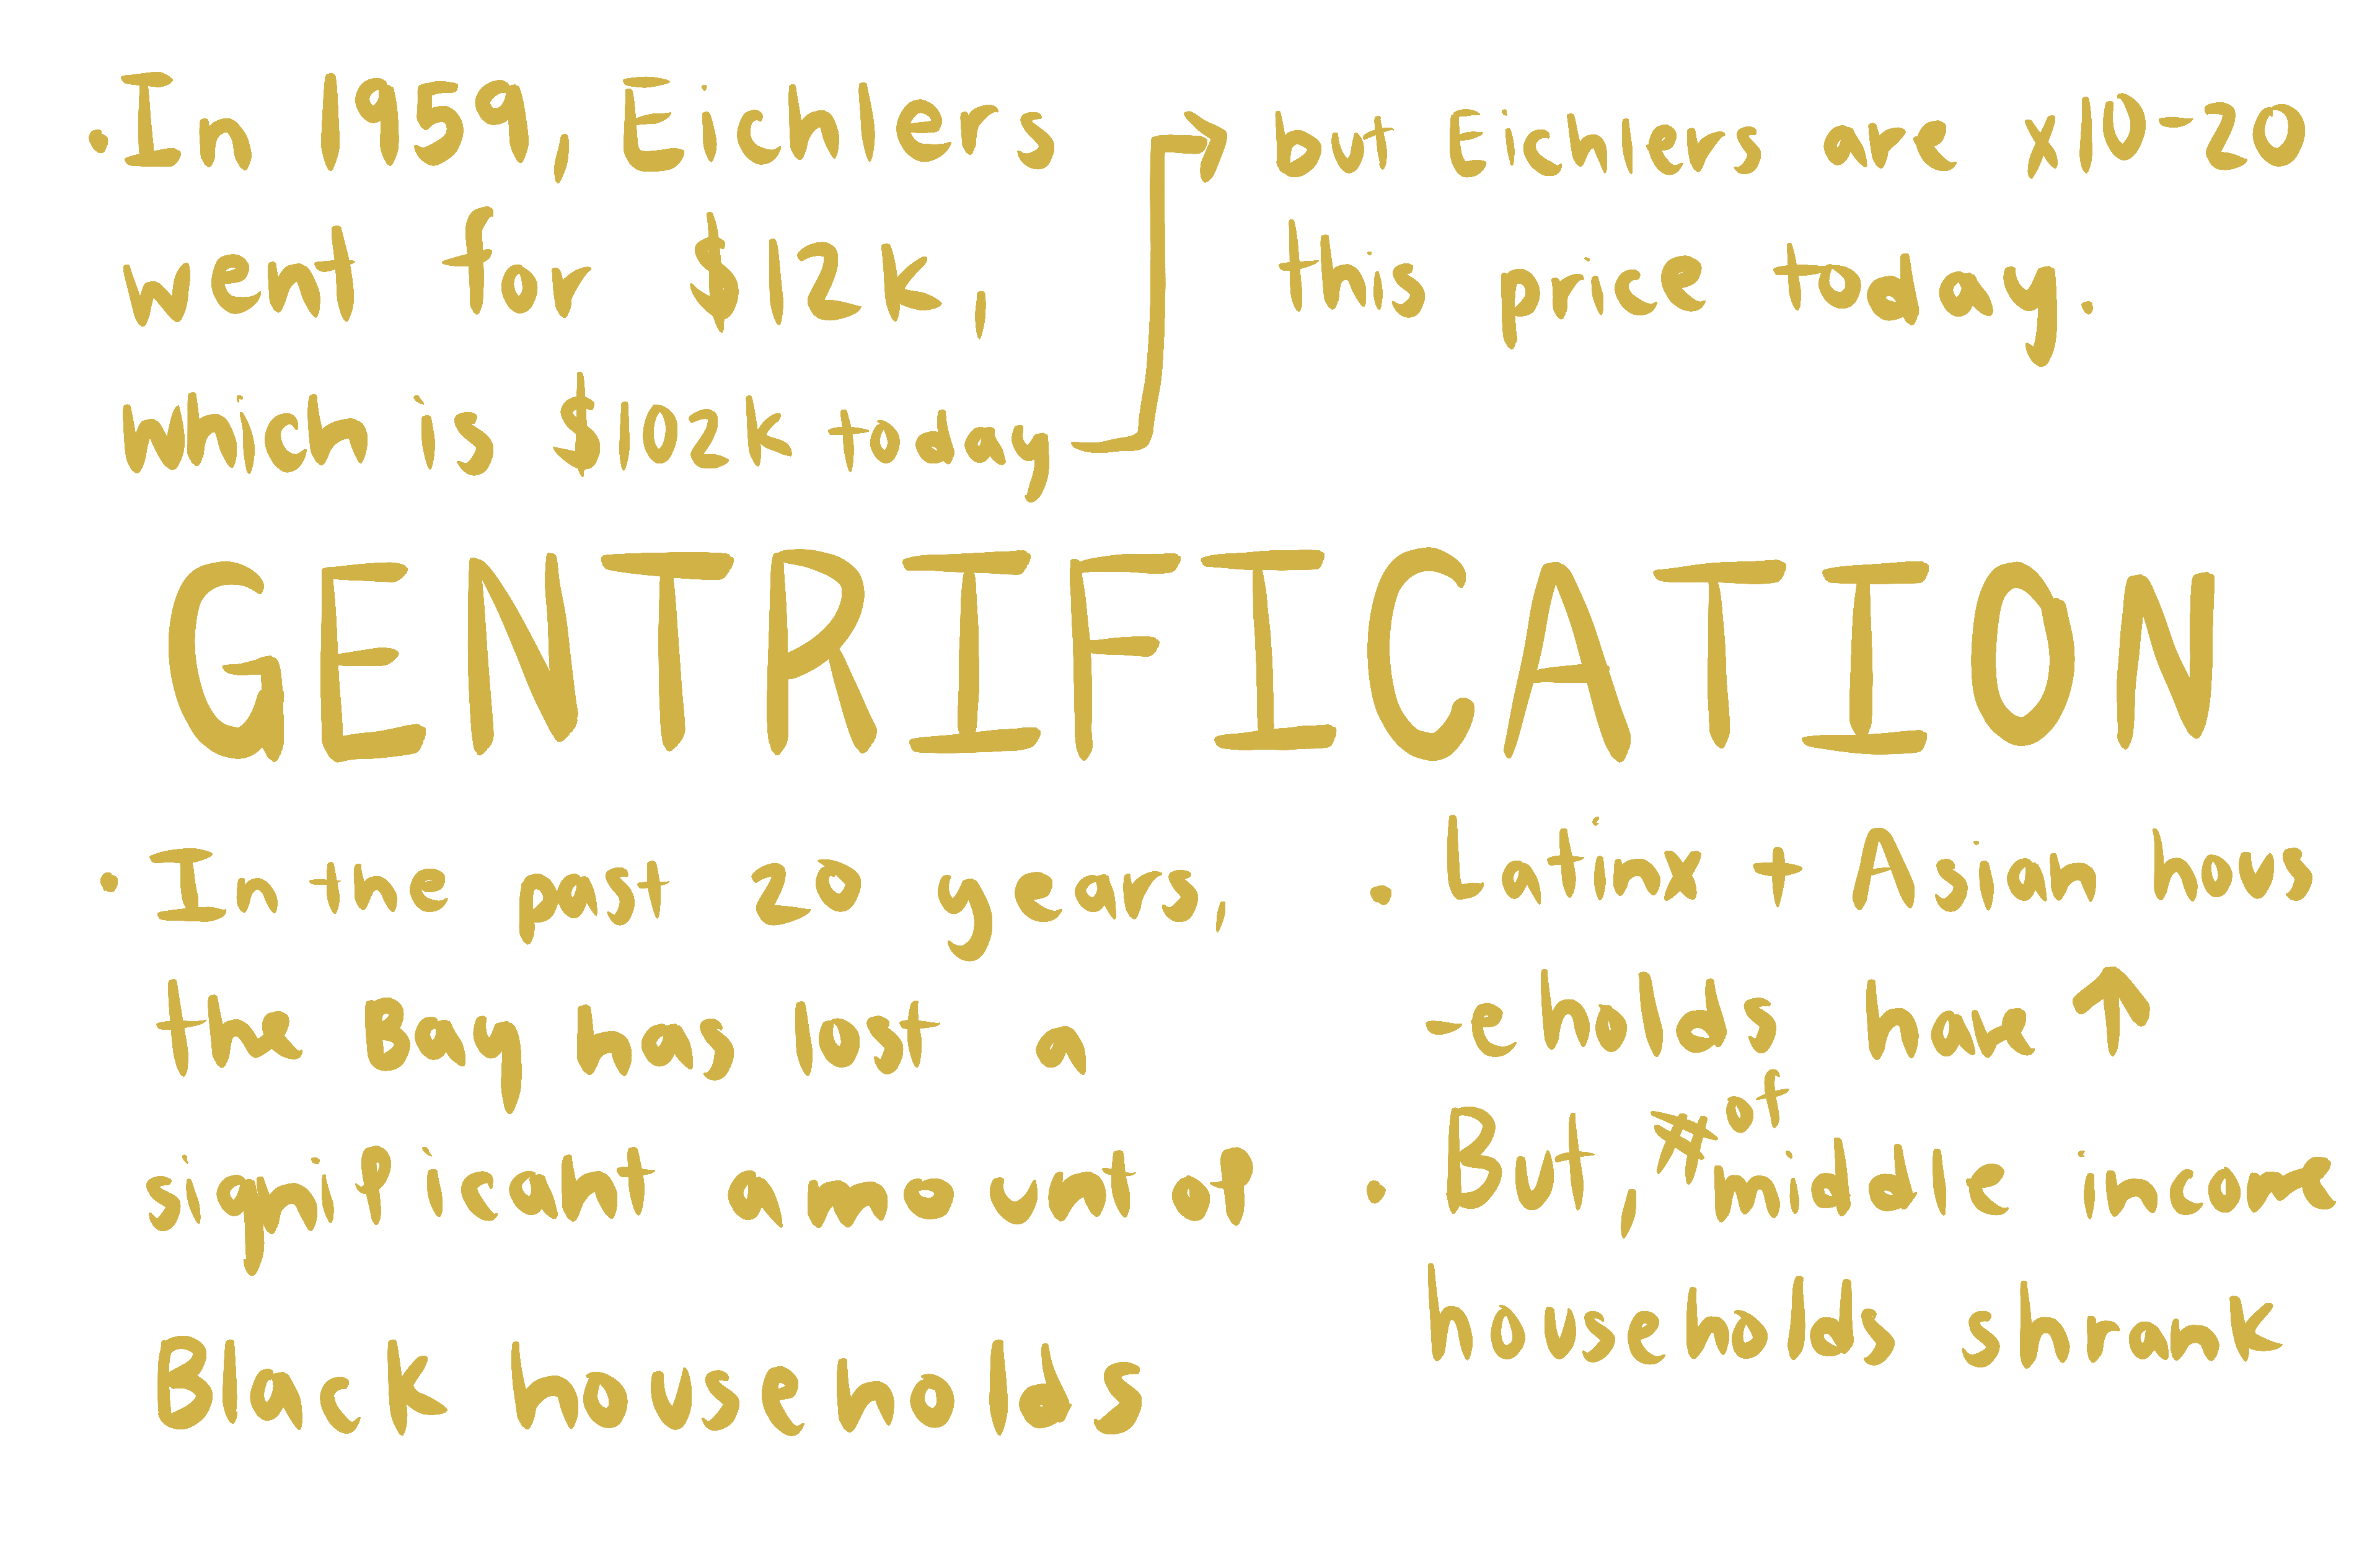 • In 1959, Eichlers
went for $12k,
which is $102k today
but Eichlers are x10-20
this price today.
GENTRIFICATION
• In the past 20 years,
the Bay has lost a
significant amount of
Black households
• Latinx + Asian hous
-eholds have ↑
• But, # of middle income
households shrank